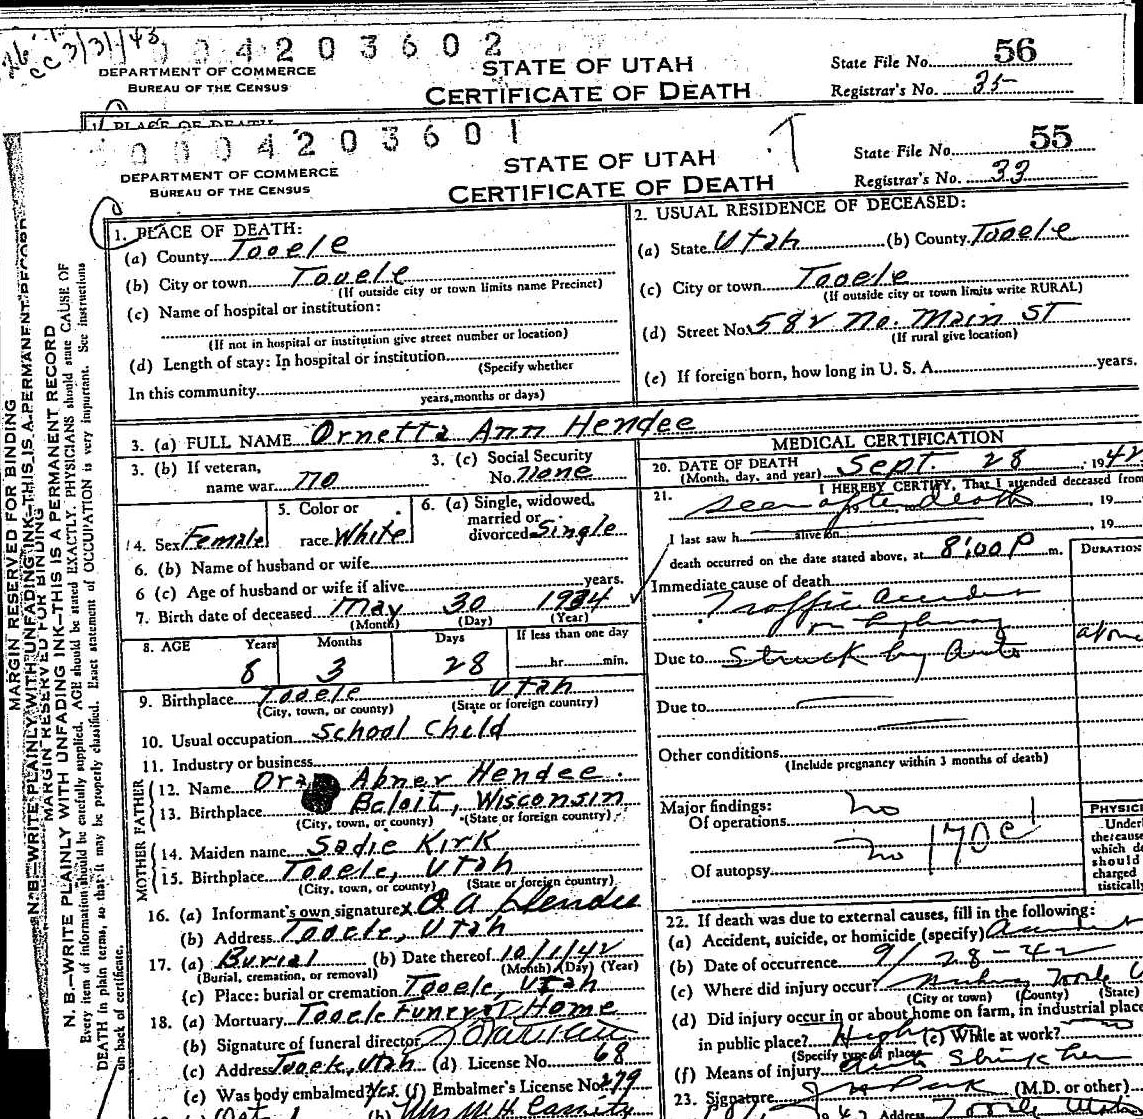 CC 3/31/43
0004203602
DEPARTMENT OF COMMERCE
BUREAU OF THE CENSUS
STATE OF UTAH
CERTIFICATE OF DEATH
State File No. 56
Registrar's No. 35
1. PLACE OF DEATH
0004203601
DEPARTMENT OF COMMERCE
BUREAU OF THE CENSUS
STATE OF UTAH
CERTIFICATE OF DEATH
State File No. 55
Registrar's No. 33
MARGIN RESERVED FOR BINDING
N. B.—WRITE PLAINLY WITH UNFADING INK—THIS IS A PERMANENT RECORD
MARGIN RESERVED FOR BINDING
N. B.—WRITE PLAINLY WITH UNFADING INK—THIS IS A PERMANENT RECORD
Every item of information should be carefully supplied. AGE should be stated EXACTLY. PHYSICIANS should state CAUSE OF
DEATH in plain terms, so that it may be properly classified. Exact statement of OCCUPATION is very important. See instructions
on back of certificate.
1. PLACE OF DEATH:
(a) County Tooele
(b) City or town Tooele
(If outside city or town limits name Precinct)
(c) Name of hospital or institution:
(If not in hospital or institution give street number or location)
(d) Length of stay: In hospital or institution
(Specify whether
In this community
years, months or days)
2. USUAL RESIDENCE OF DECEASED:
(a) State Utah (b) County Tooele
(c) City or town Tooele
(If outside city or town limits write RURAL)
(d) Street No. 582 No. Main ST
(If rural give location)
(e) If foreign born, how long in U. S. A. years.
3. (a) FULL NAME Ornetta Ann Hendee
3. (b) If veteran,
name war no
3. (c) Social Security
No. None
4. Sex Female
5. Color or
race White
6. (a) Single, widowed,
married or
divorced Single
6. (b) Name of husband or wife
6 (c) Age of husband or wife if alive years.
7. Birth date of deceased May 30 1934
(Month) (Day) (Year)
8. AGE Years Months Days If less than one day
8 3 28 hr. min.
9. Birthplace Tooele Utah
(City, town, or county) (State or foreign country)
10. Usual occupation School Child
11. Industry or business
FATHER
12. Name Ora Abner Hendee.
13. Birthplace Beloit, Wisconsin
(City, town, or county) (State or foreign country)
MOTHER
14. Maiden name Sadie Kirk
15. Birthplace Tooele, Utah
(City, town, or county) (State or foreign country)
16. (a) Informant's own signature x O A Hendee
(b) Address Tooele, Utah
17. (a) Burial (b) Date thereof 10/1/42
(Burial, cremation, or removal) (Month) (Day) (Year)
(c) Place: burial or cremation Tooele, Utah
18. (a) Mortuary Tooele Funeral Home
(b) Signature of funeral director
(c) Address Tooele, Utah (d) License No. 68
(e) Was body embalmed? Yes. (f) Embalmer's License No. 279
MEDICAL CERTIFICATION
20. DATE OF DEATH
(Month, day, and year) Sept. 28, 1942
21. I HEREBY CERTIFY, That I attended deceased from
seen after death 19
I last saw h alive on 19
death occurred on the date stated above, at 8:00 P m.
DURATION
Immediate cause of death
Traffic accident
on highway
Due to Struck by auto
Due to
Other conditions
(Include pregnancy within 3 months of death)
Major findings:
Of operations no
170c
Of autopsy no
PHYSICI
Under
the cause
which de
should
charged
tistically
22. If death was due to external causes, fill in the following:
(a) Accident, suicide, or homicide (specify) Accident
(b) Date of occurrence 9/28-42
(c) Where did injury occur? Tooele U
(City or town) (County) (State)
(d) Did injury occur in or about home on farm, in industrial place
in public place? Highway (e) While at work? no
(Specify type of place)
(f) Means of injury
23. Signature (M.D. or other)
Address Tooele Utah